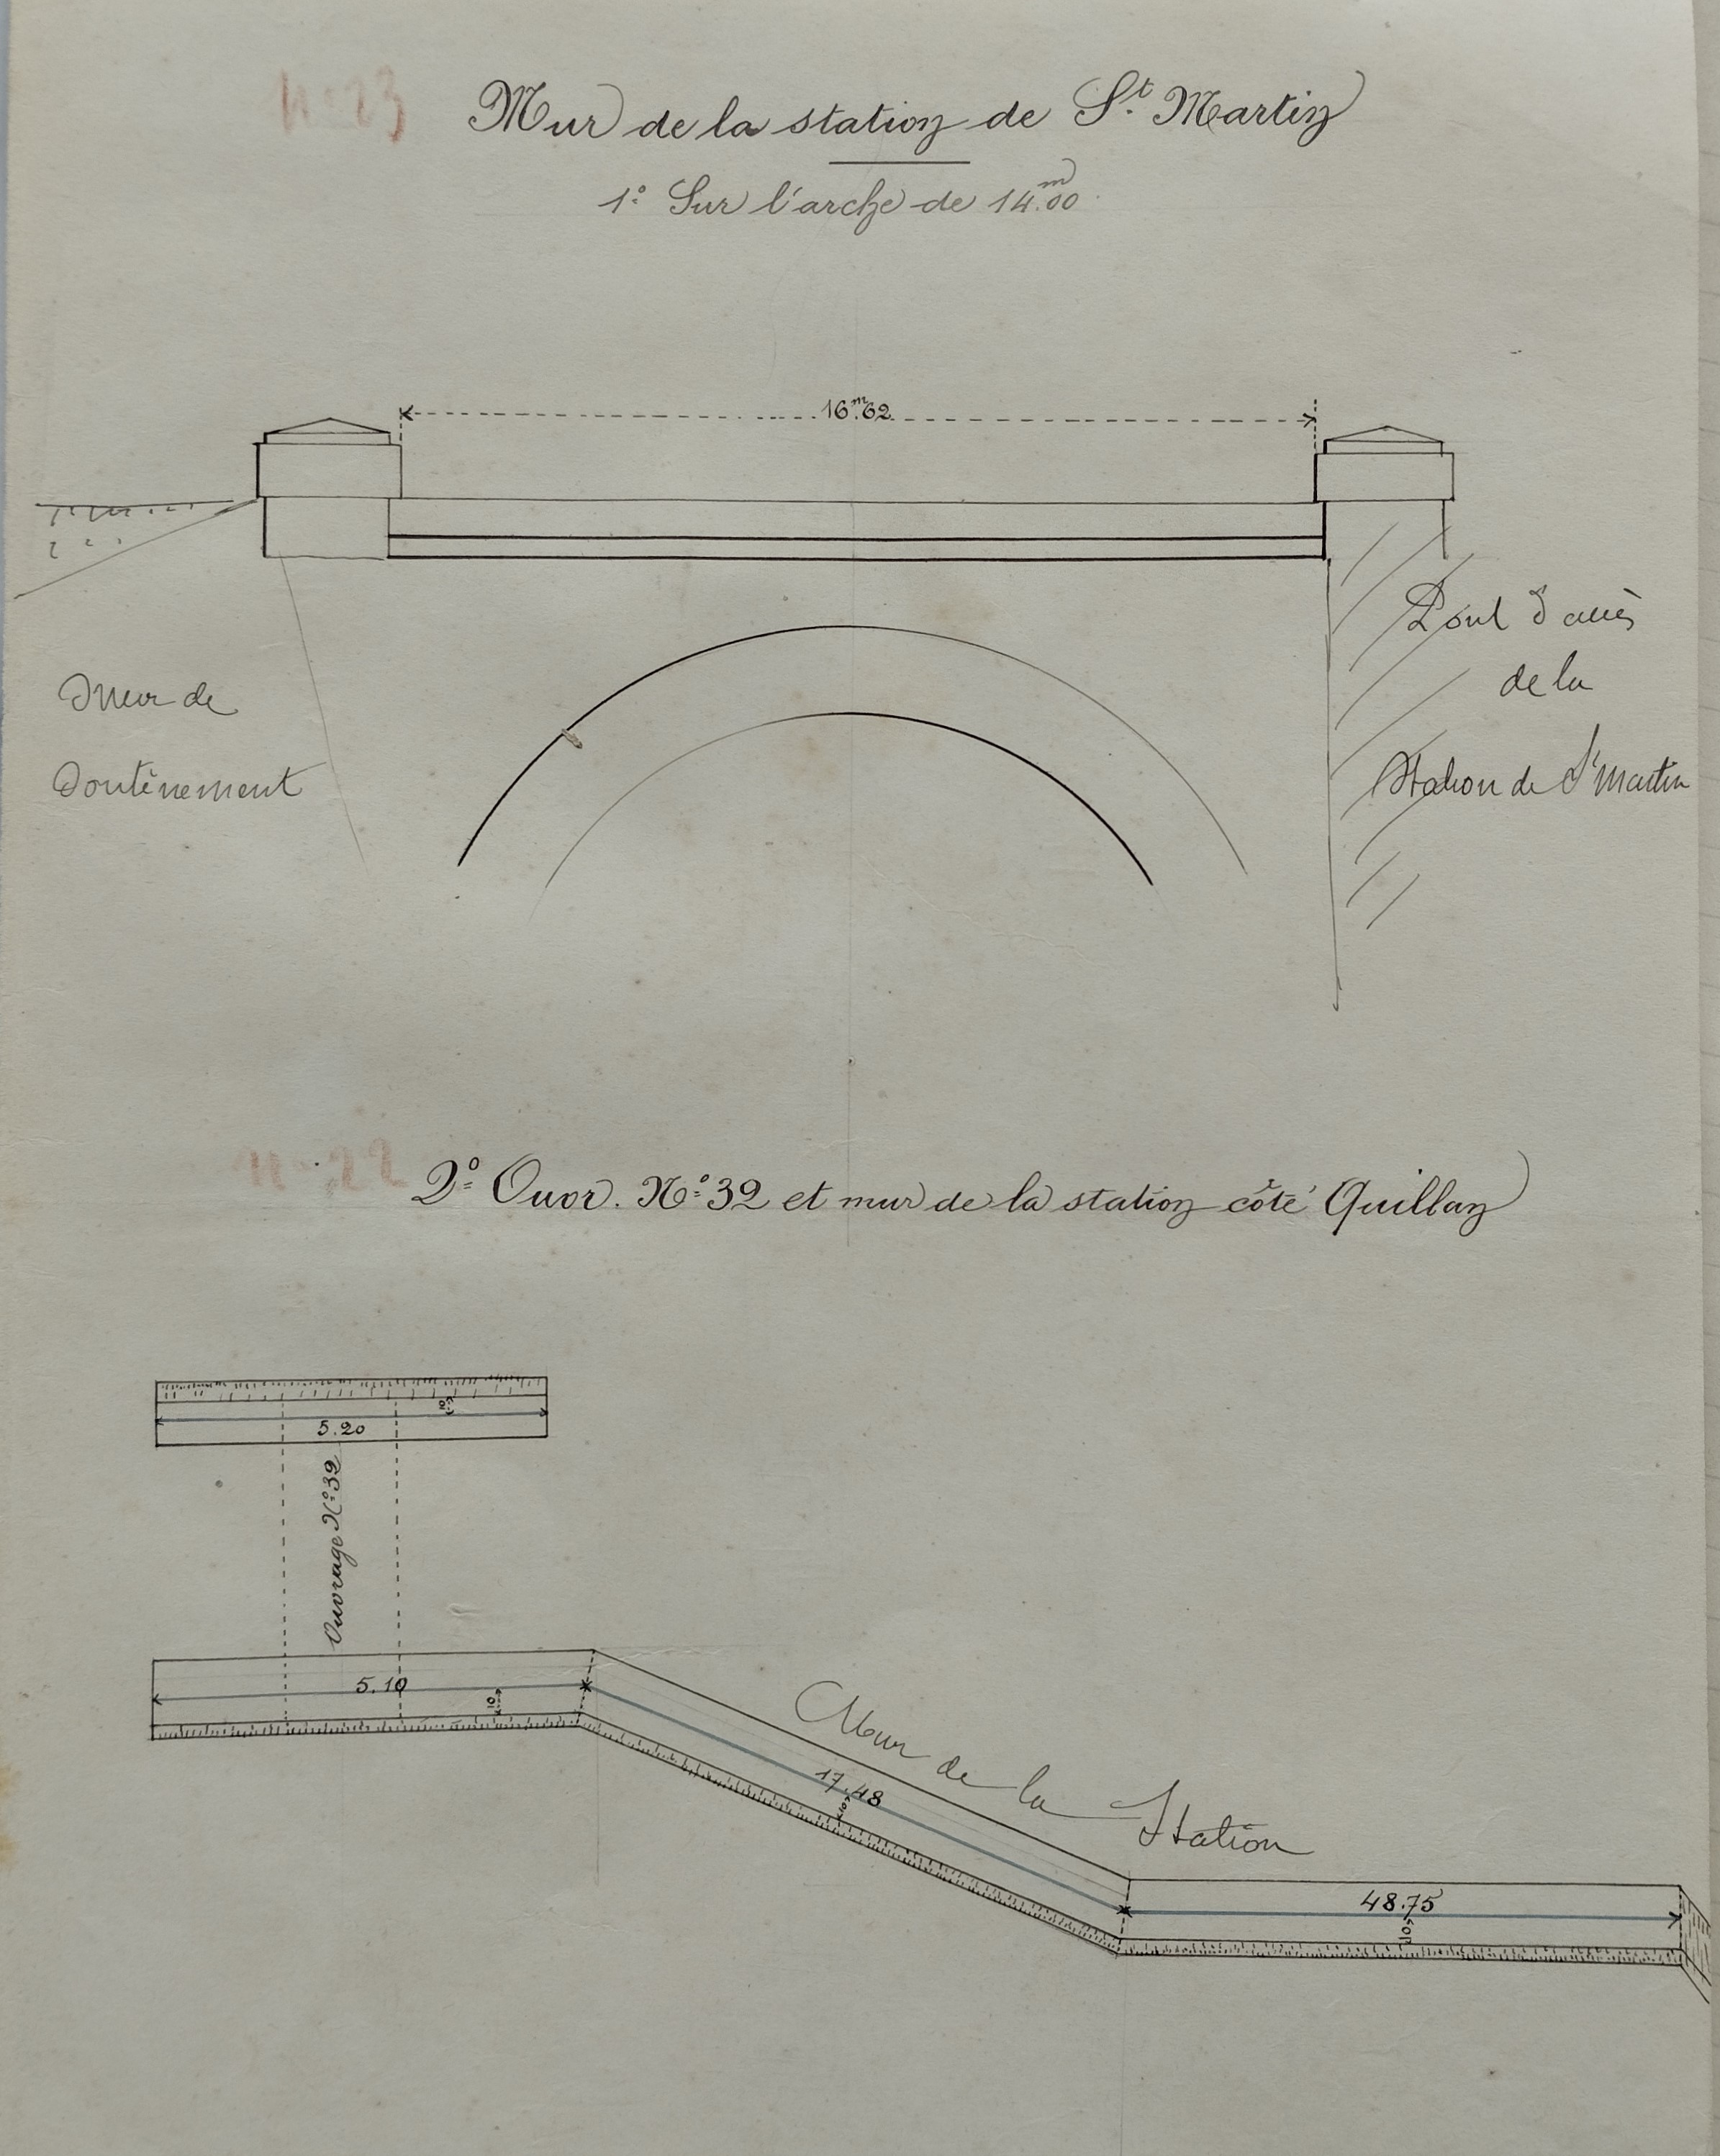 N° 23
Mur de la station de St. Martin
1° Sur l'arche de 14.m00
16.m62
Mur de
Soutènement
Pont d'accès
de la
Station de St Martin
N° 22
2° Ouvr. N° 32 et mur de la station côté Quillan
5.20
Ouvrage N° 32
5.10
10
Mur de la Station
17.48
10
48.75
10